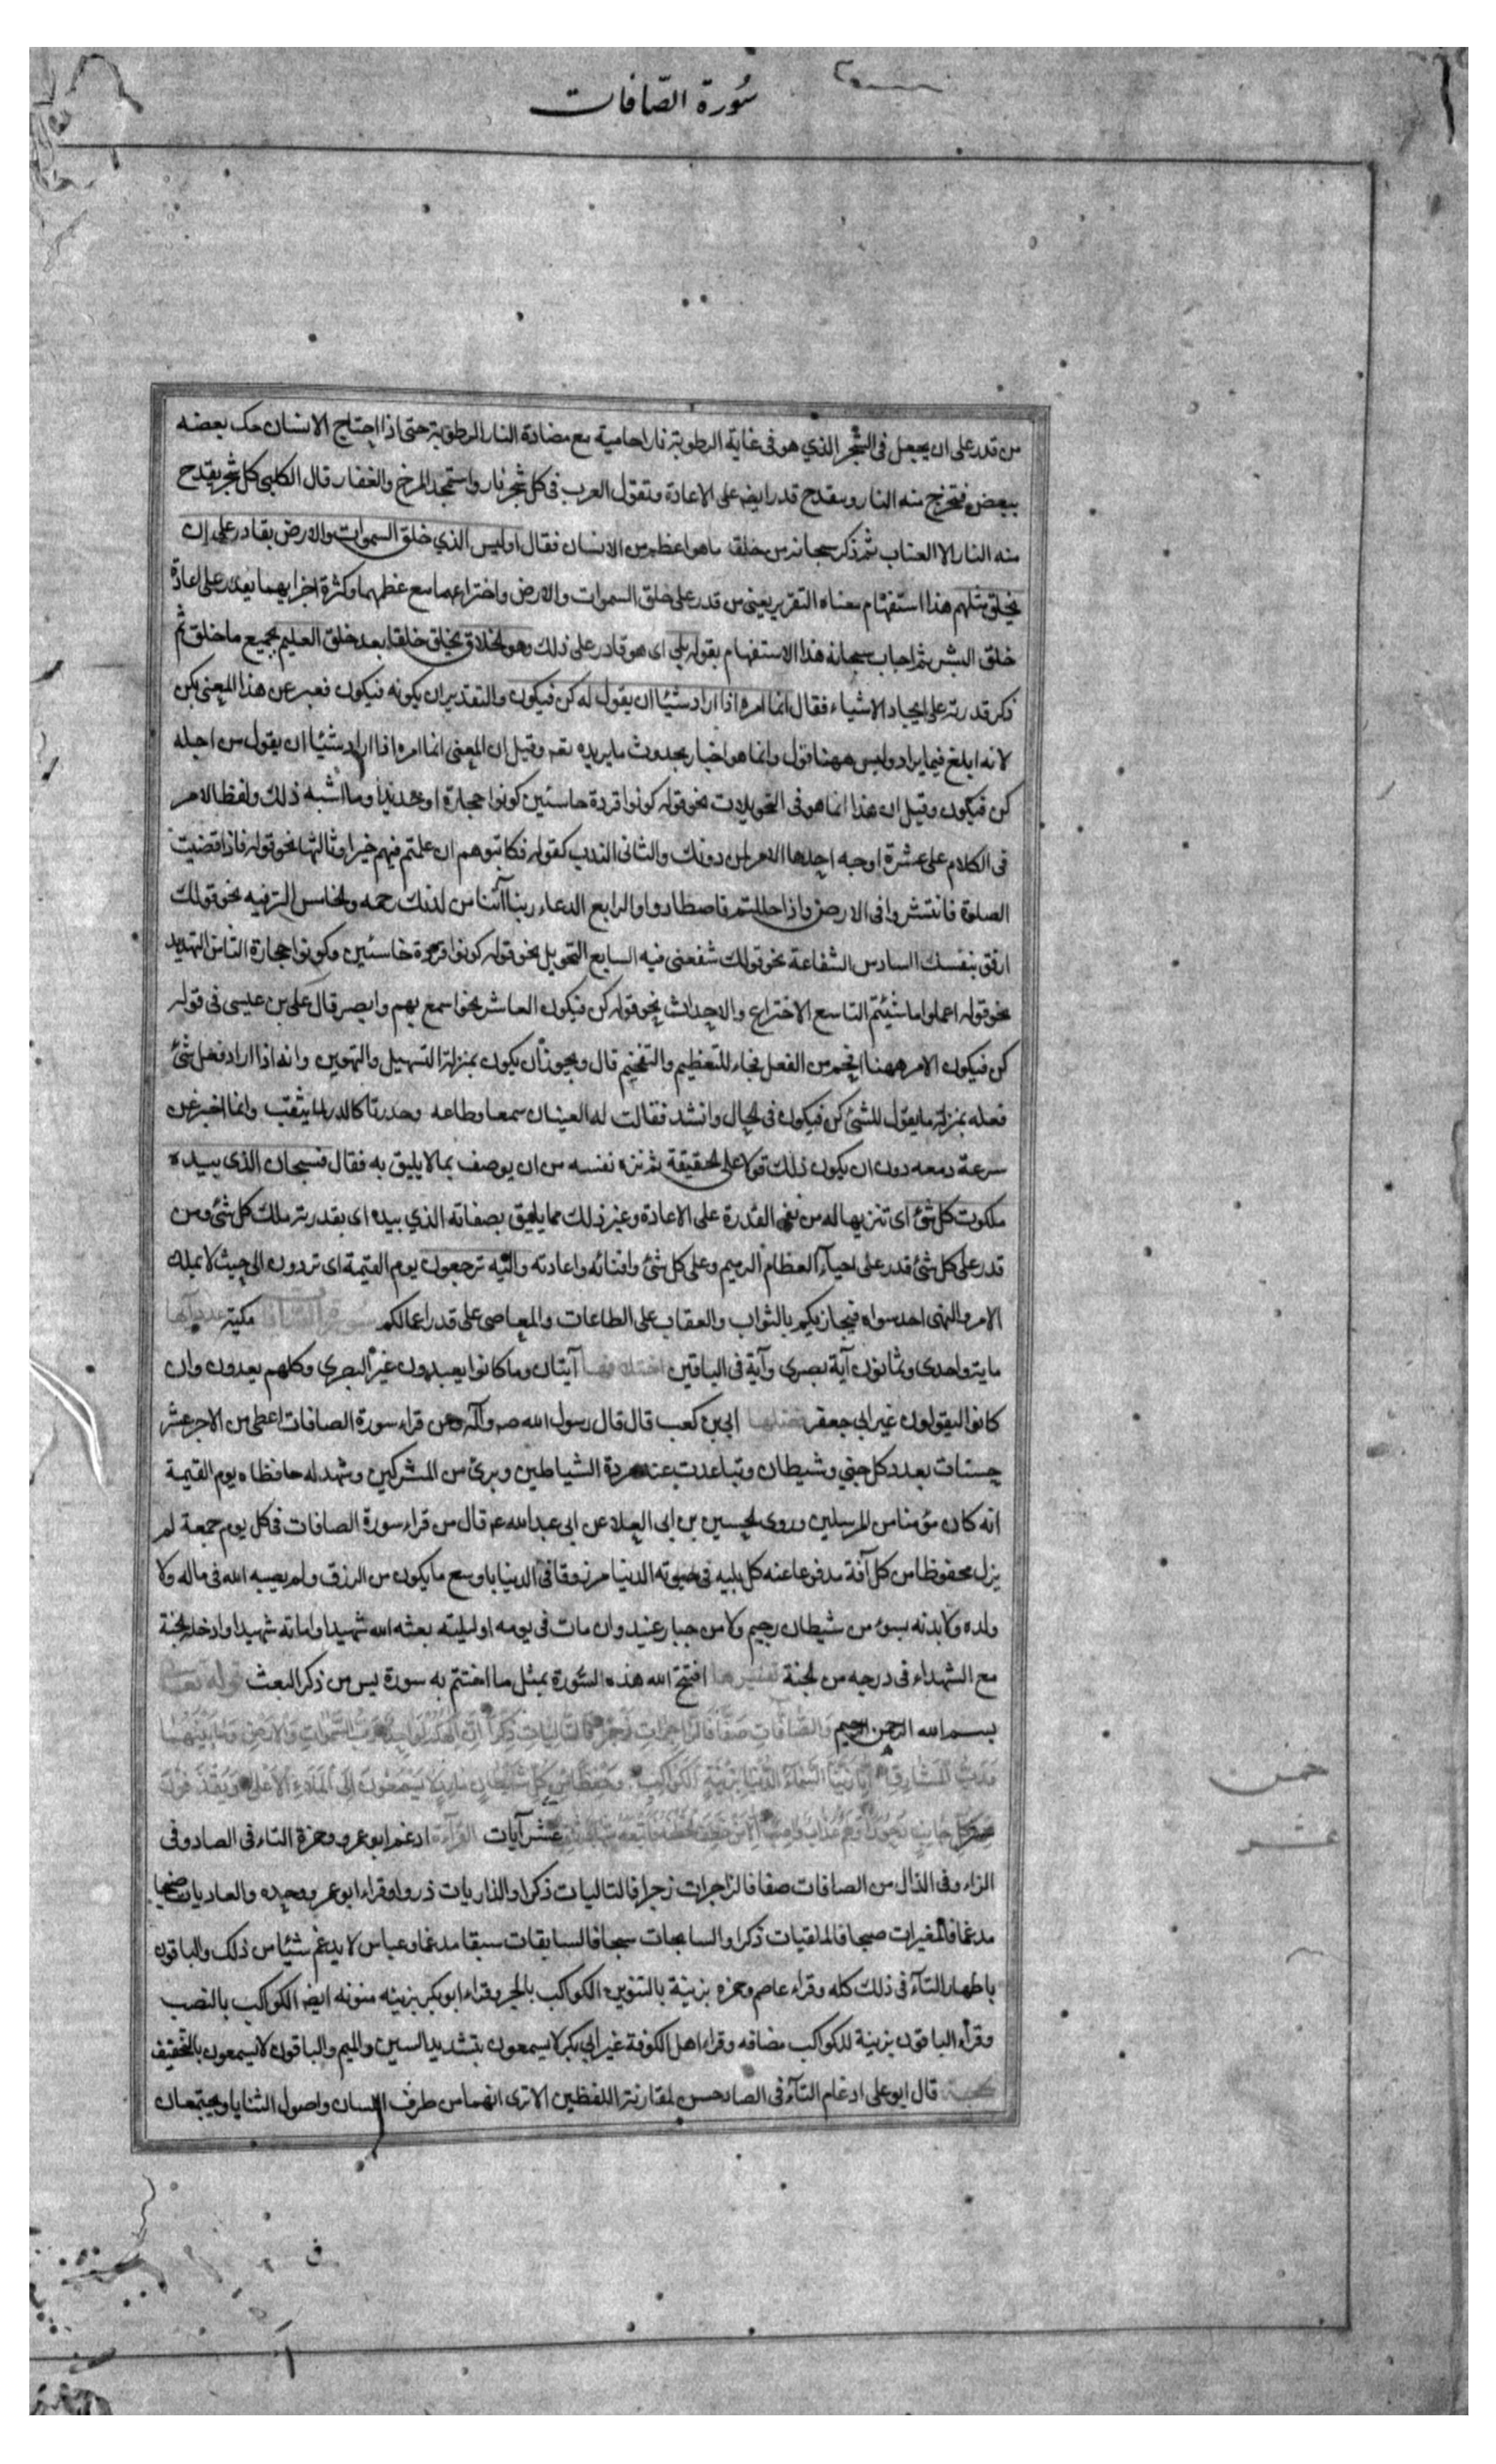 سُورة الصّافات
من قدر على ان يجعل فى الشّجر الذي هو فى غاية الرطوبة نارا حامية مع مضادة النار الرطوبة حتى اذا احتاج الانسان حك بعضه
ببعض فتخرج منه النار وينقدح قدر ايضه على الاعادة وتقول العرب فى كل شجر نار واستمجد المرخ والغفار قال الكلبى كل شجر يقدح
منه النار الا العناب ثم ذكر سبحانه من خلقه ما هو اعظم من الانسان فقال اوليس الذي خلق السموات والارض بقادر على ان
يخلق مثلهم هذا استفهام معناه التقرير يعنى من قدر على خلق السموات والارض واختراعهما مع عظمهما وكثرة اجزايهما يقدر على اعادة
خلق البشر ثم اجاب سبحانه هذا الاستفهام بقوله بلى اى هو قادر على ذلك وهو الخلاق يخلق خلقا بعد خلق العليم بجميع ما خلق ثم
ذكر قدرته على ايجاد الاشياء فقال انما امره اذا اراد شيئا ان يقول له كن فيكون والتقدير ان يكونه فيكون فعبر عن هذا المعنى بكن
لانه ابلغ فيما يراد وليس ههنا قول وانما هو اخبار بحدوث ما يريده تعه وقيل ان المعنى انما امره اذا اراد شيئا ان يقول من اجله
كن فيكون وقيل ان هذا انما هو فى التحويلات نحو قوله كونوا قردة خاسئين كونوا حجارة او حديدا وما اشبه ذلك ولفظ الامر
فى الكلام على عشرة اوجه احدها الامر لمن دونك والثانى الندب كقوله فكاتبوهم ان علمتم فيهم خيرا وثالثها نحو قوله فاذا قضيت
الصلوة فانتشروا فى الارض واذا حللتم فاصطادوا والرابع الدعاء ربنا آتنا من لدنك رحمه والخامس الترفيه نحو قولك
ارفق بنفسك السادس الشفاعة نحو قولك شفعنى فيه السابع التحويل نحو قوله كونوا قردة خاسئين وكونوا حجارة الثامن التهديد
نحو قوله اعملوا ما شئتم التاسع الاختراع والاحداث نحو قوله كن فيكون العاشر نحو اسمع بهم وابصر قال على بن عيسى فى قوله
كن فيكون الامر ههنا افخم من الفعل فجاء للتعظيم والتفخيم قال ويجوز ان يكون بمنزلة التسهيل والتهوين وانه اذا اراد فعل شئ
فعله بمنزلة ما يقول للشئ كن فيكون فى الحال وانشد فقالت له العينان سمعا وطاعه وحدرتا كالدر لما يثقب وانما اخبر عن
سرعة دمعه دون ان يكون ذلك قولا على الحقيقة ثم نزه نفسه من ان يوصف بما لا يليق به فقال فسبحان الذى بيده
ملكوت كل شئ اى تنزيها له من نفى القدرة على الاعادة وغير ذلك مما يليق بصفاته الذي بيده اى بقدرته ملك كل شئ ومن
قدر على كل شئ قدر على احياء العظام الرميم وعلى كل شئ وافنائه واعادته واليه ترجعون يوم القيمة اى تردون الى حيث لا يملك
الامر والنهى احد سواه فيجازيكم بالثواب والعقاب على الطاعات والمعاصى على قدر اعمالكم سورة الصافات مكية عدد آيها
ماية واحدى وثمانون آية بصرى وآية فى الباقين اختلافها آيتان وما كانوا يعبدون غير البصري وكلهم يعدون وان
كانوا ليقولون غير ابى جعفر فضلها ابى بن كعب قال قال رسول الله صه وآله ومن قراء سورة الصافات اعطى من الاجر عشر
حسنات بعدد كل جنى وشيطان وتباعدت عنه مردة الشياطين وبرئ من المشركين وشهد له حافظاه يوم القيمة
انه كان مؤمنا من المرسلين وروى الحسين بن ابى العلاء عن ابى عبد الله عه قال من قراء سورة الصافات فى كل يوم جمعة لم
يزل محفوظا من كل آفة مدفوعا عنه كل بليه فى حيوته الدنيا مرزوقا فى الدنيا باوسع ما يكون من الرزق ولم يصيبه الله فى ماله ولا
ولده ولا بدنه بسوء من شيطان رجيم ولا من جبار عنيد وان مات فى يومه او ليلته بعثه الله شهيدا واماته شهيدا وادخله الجنة
مع الشهداء فى درجه من الجنة تفسيرها افتتح الله هذه السّورة بمثل ما اختتم به سورة يس من ذكر البعث قوله تعالى
بسم الله الرحمن الرحيم وَالصَّافَّاتِ صَفًّا فَالزَّاجِرَاتِ زَجْرًا فَالتَّالِيَاتِ ذِكْرًا اِنَّ اِلٰهَكُمْ لَوَاحِدٌ رَبُّ السَّمٰوَاتِ وَالْاَرْضِ وَمَا بَيْنَهُمَا
وَرَبُّ الْمَشَارِقِ اِنَّا زَيَّنَّا السَّمَاءَ الدُّنْيَا بِزِينَةٍ الْكَوَاكِبِ وَحِفْظًا مِنْ كُلِّ شَيْطَانٍ مَارِدٍ لَا يَسَّمَّعُونَ اِلَى الْمَلَاءِ الْاَعْلٰى وَيُقْذَفُونَ
مِنْ كُلِّ جَانِبٍ دُحُورًا وَلَهُمْ عَذَابٌ وَاصِبٌ اِلَّا مَنْ خَطِفَ الْخَطْفَةَ فَاَتْبَعَهُ شِهَابٌ ثَاقِبٌ عشر آيات القرآءة ادغم ابو عمرو وحمزة التاء فى الصاد وفى
الزاء وفى الذال من الصافات صفا فالزاجرات زجرا فالتاليات ذكرا والذاريات ذروا وقراء ابو عمرو وحده والعاديات ضبحا
مدغما فالمغيرات صبحا فالملقيات ذكرا والسابحات سبحا فالسابقات سبقا مدغما وعباس لا يدغم شيئا من ذلك والباقون
باظهار التآء فى ذلك كله وقراء عاصم وحمزه بزينة بالتنوين الكواكب بالجر وقراء ابو بكر بزينه منونه ايضه الكواكب بالنصب
وقرأء الباقون بزينة الكواكب مضافه وقراء اهل الكوفة غير ابى بكر لا يسمعون بتشديد السين والميم والباقون لا يسمعون بالتخفيف
الحجة قال ابو على ادغام التآء فى الصاد حسن لمقارنة اللفظين الا ترى انهما من طرف اللسان واصول الثنايا ويجتمعان
خمس
عشر